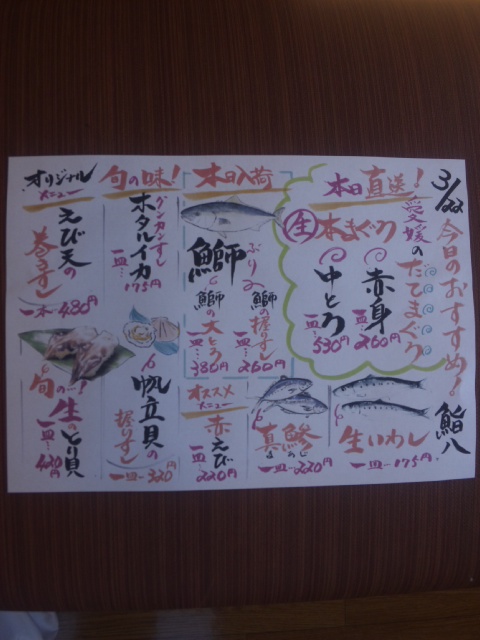 3/22 今日のおすすめ!
鮨八
本日直送!
愛媛の
たてまぐろ
生本まぐろ
赤身
一皿…260円
中とろ
一皿…530円
生いわし
一皿…175円
本日入荷
鰤
ぶりの
鰤の握りずし
一皿…260円
鰤の大とろ
一皿…380円
真鯵
まあじ
一皿…220円
オススメ
メニュー
赤えび
一皿…220円
旬の味!
グンカンずし
ホタルイカ
一皿…175円
帆立貝の
握りずし
一皿…320円
オリジナル
メニュー
えび天の
巻ずし
一本…480円
旬の
生のとり貝
一皿…420円